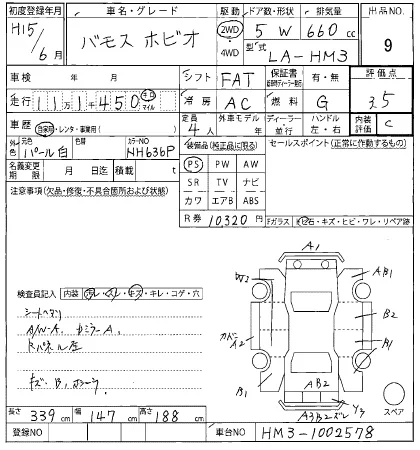 初度登録年月
H15/6月
車名・グレード
バモス ホビオ
駆動
2WD
4WD
ドア数・形状
5 W
排気量
660 cc
型式
LA-HM3
出品NO.
9
車検 年 月
シフト FAT
保証書
有・無
評価点
3.5
走行 11万1千450 キロ マイル
冷房 AC
燃料 G
車歴 自家用・レンタ・事業用( )
定員 4人
外車モデル 年
ディーラー 並行
ハンドル 左・右
内装評価 C
外色
元色 パール白
色替
カラーNO NH636P
装備品(純正品に限る)
セールスポイント(正常に作動するもの)
名義変更期限 月 日迄
積載 t
PS PW AW
SR TV ナビ
カワ エアB ABS
R券 10,320円
注意事項(欠品・修復・不具合箇所および状態)
Fガラス 飛石・キズ・ヒビ・ワレ・リペア跡
検査員記入
内装 汚レ・スレ・キズ・キレ・コゲ・穴
シートヘタリ
A/W-A.
キズ・B1
A1
AB1
W2
B2
A2
B1
B1
AB2
Y3
A3B2ズレ
スペア
長さ 339cm
幅 147cm
高さ 188cm
登録NO
車台NO HM3-1002578